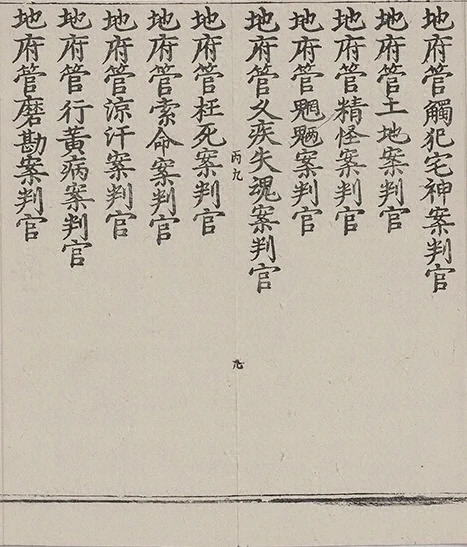 地府管觸犯宅神案判官
地府管土地案判官
地府管精怪案判官
地府管魍魎案判官
地府管久疾失魂案判官
丙九
九
地府管枉死案判官
地府管索命案判官
地府管涼汗案判官
地府管行黃病案判官
地府管磨勘案判官